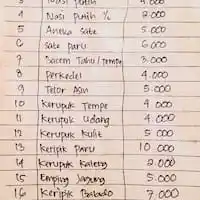 3 Nasi putih 4.000
4 Nasi putih ½ 2.000
5 Aneka sate 5.000
6 sate paru 6.000
7 Bacem Tahu/tempe 3.000
8 perkedel 4.000
9 Telor Asin 5.000
10 Kerupuk Tempe 4.000
11 Kerupuk udang 4.000
12 Kerupuk Kulit 5.000
13 Keripik Paru 10.000
14 Kerupuk Kaleng 2.000
15 Emping Jagung 5.000
16 Keripik Balado 7.000